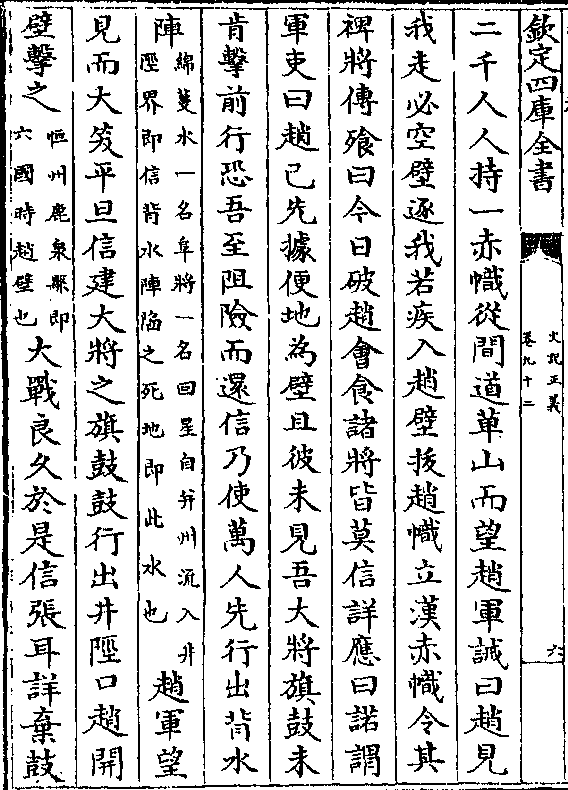 欽定四庫全書
史記正義
卷九十二
六
二千人人持一赤幟從間道萆山而望趙軍誡曰趙見
我走必空壁逐我若疾入趙壁拔趙幟立漢赤幟令其
裨將傳飱曰今日破趙會食諸將皆莫信詳應曰諾謂
軍吏曰趙已先據便地為壁且彼未見吾大將旗鼓未
肯擊前行恐吾至阻險而還信乃使萬人先行出背水
陣
綿蔓水一名阜將一名回星自并州流入井
陘界即信背水陣陷之死地即此水也
趙軍望
見而大笑平旦信建大將之旗鼓鼓行出井陘口趙開
壁擊之
恒州鹿泉縣即
六國時趙壁也
大戰良久於是信張耳詳棄鼓